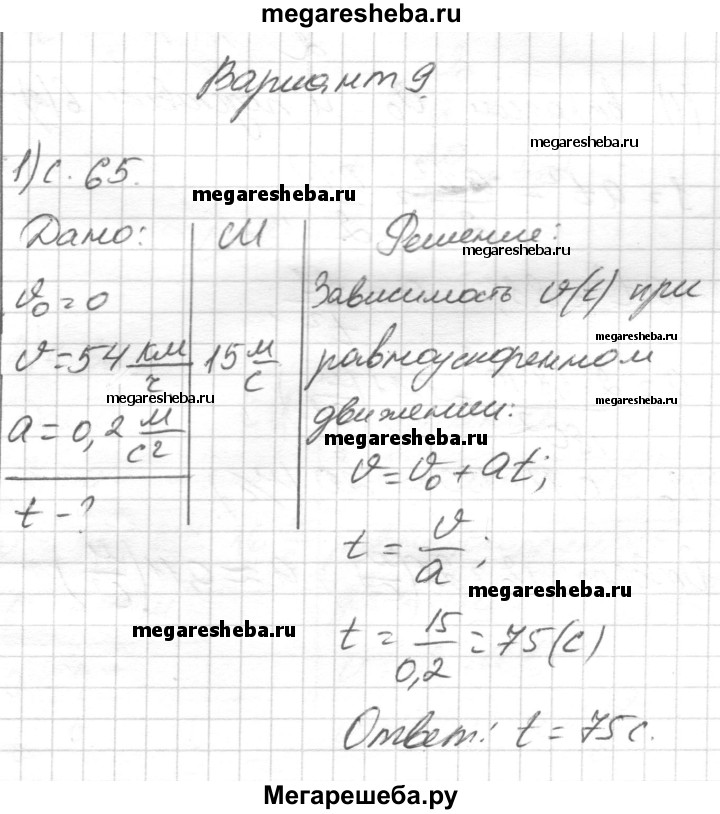 megaresheba.ru
Вариант 9
megaresheba.ru
1) с. 65.
megaresheba.ru
Дано:
v₀ = 0
v = 54 км/ч
megaresheba.ru
a = 0,2 м/с²
t - ?
СИ
15 м/с
Решение:
megaresheba.ru
Зависимость v(t) при
megaresheba.ru
равноускоренном
megaresheba.ru
движении:
megaresheba.ru
v = v₀ + at;
t = v/a;
megaresheba.ru
megaresheba.ru
t = 15/0,2 = 75 (с)
Ответ: t = 75 с.
Мегарешеба.ру